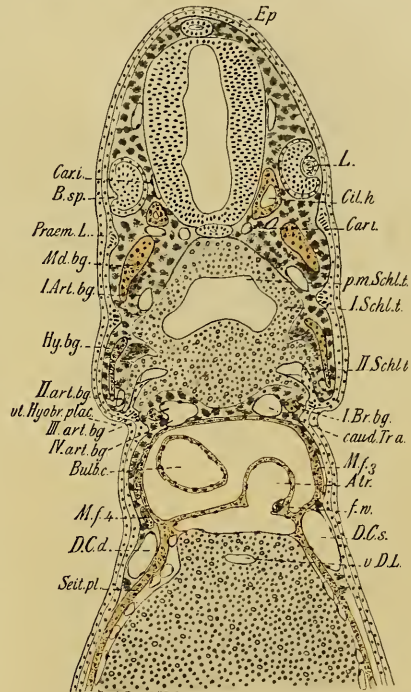 Ep
Car.i.
B.sp.
Praem. L.
Md.bg.
I.Art.bg.
Hy.bg.
II.art.bg
vt.Hyobr.plac.
III.art.bg
IV.art.bg
Bulb.c.
M.f.4
D.C.d.
Seit.pl.
L.
Cil.h
Car i.
p.m.Schl.t.
I.Schl.t.
II.Schl.t
I.Br.bg.
caud.Tr a.
M.f.3
Atr.
f.w.
D.C.s.
v.D.L.